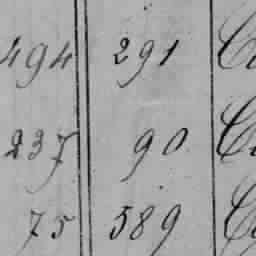 494 291
237 90
75 589